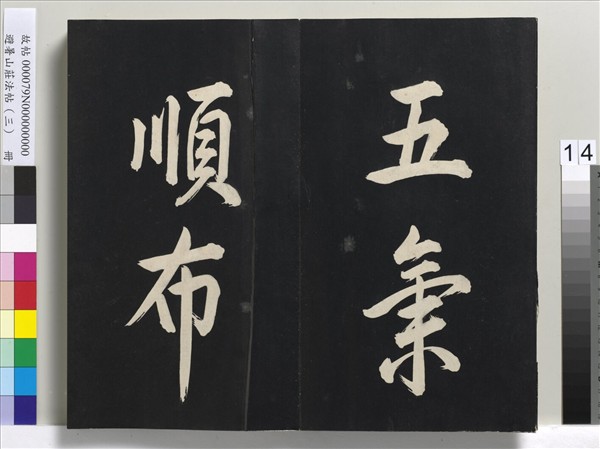 五氣
順布
故帖 000079N000000000
避暑山莊法帖（三） 冊
14